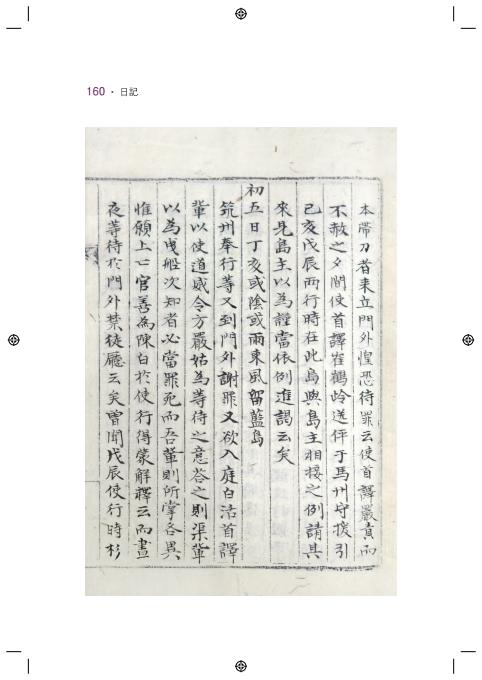 160 · 日記
本帶刀者来立門外惶恐待罪云使首譯嚴責而
不赦之夕間使首譯崔鶴岭送伻于馬州守援引
己亥戊辰兩行時在此島與島主相接之例請其
来見島主以為謹當依例進謁云矣
初五日丁亥或陰或雨東風留藍島
筑州奉行等又到門外謝罪又欲入庭白活首譯
輩以使道威令方嚴姑為等待之意答之則渠輩
以為曳船次知者必當罪死而吾輩則所掌各異
惟願上上官善為陳白於使行得蒙解釋云而晝
夜等待於門外禁徒廳云矣曾聞戊辰使行時杉